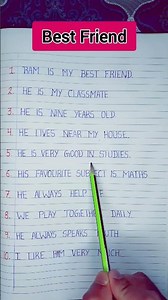 Best Friend
1. RAM IS MY BEST FRIEND.
2. HE IS MY CLASSMATE.
3. HE IS NINE YEARS OLD
4. HE LIVES NEAR MY HOUSE.
5. HE IS VERY GOOD IN STUDIES.
6. HIS FAVOURITE SUBJECT IS MATHS
7. HE ALWAYS HELP
8. WE PLAY TOGETHER DAILY.
9. HE ALWAYS SPEAKS
10. I LIKE HIM VERY MUCH.